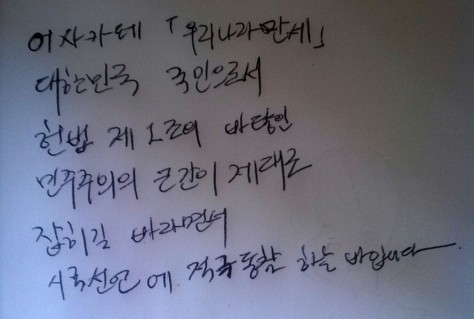 여자카페 「우리나라만세」
대한민국 국민으로서
헌법 제1조의 바탕인
민주주의의 근간이 제대로
잡히길 바라면서
시국선언에 적극 동참 하는 바입니다.